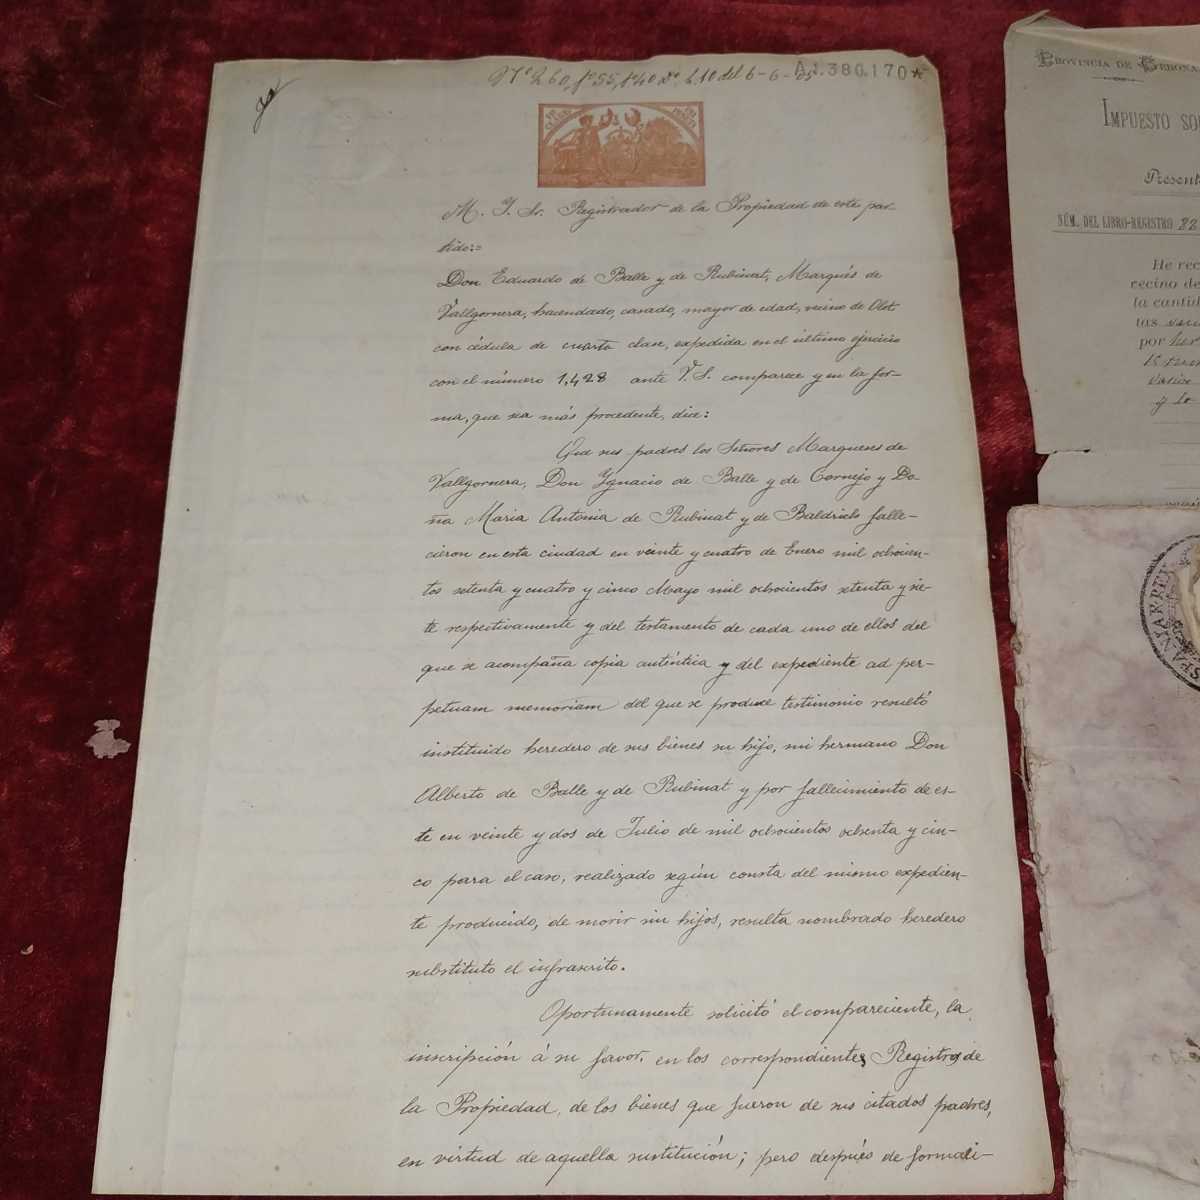 Nº 260, fº 55, tº 40 dº, 6.10 del 6-6-05
A.1.380.170★
M. I. Sr. Registrador de la Propiedad de este par
tido:=
Don Eduardo de Balle y de Rubinat, Marqués de
Vallgornera, hacendado, casado, mayor de edad, vecino de Olot
con cédula de cuarta clase, expedida en el último ejercicio
con el número 1,428 ante V.S. comparece y en la for-
ma, que sea más procedente, dice:
Que sus padres los Señores Marqueses de
Vallgornera, Don Ygnacio de Balle y de Cornejo y Do-
ña Maria Antonia de Rubinat y de Baldrich falle-
cieron en esta ciudad en veinte y cuatro de Enero mil ochocien-
tos setenta y cuatro y cinco Mayo mil ochocientos setenta y sie-
te respectivamente y del testamento de cada uno de ellos del
que se acompaña copia auténtica y del expediente ad per-
petuam memoriam del que se produce testimonio resultó
instituido heredero de sus bienes su hijo, mi hermano Don
Alberto de Balle y de Rubinat y por fallecimiento de es-
te en veinte y dos de Julio de mil ochocientos ochenta y cin-
co para el caso, realizado según consta del mismo expedien-
te producido, de morir sin hijos, resulta nombrado heredero
substituto el infrascrito.
Oportunamente solicitó el compareciente, la
inscripción á su favor. en los correspondientes Registros de
la Propiedad, de los bienes que fueron de sus citados padres,
en virtud de aquella sustitución; pero después de formali-
PROVINCIA DE GERONA
IMPUESTO SO
Present
NÚM. DEL LIBRO-REGISTRO 82
He rec
vecino de
la cantid
tas
por her
y lo